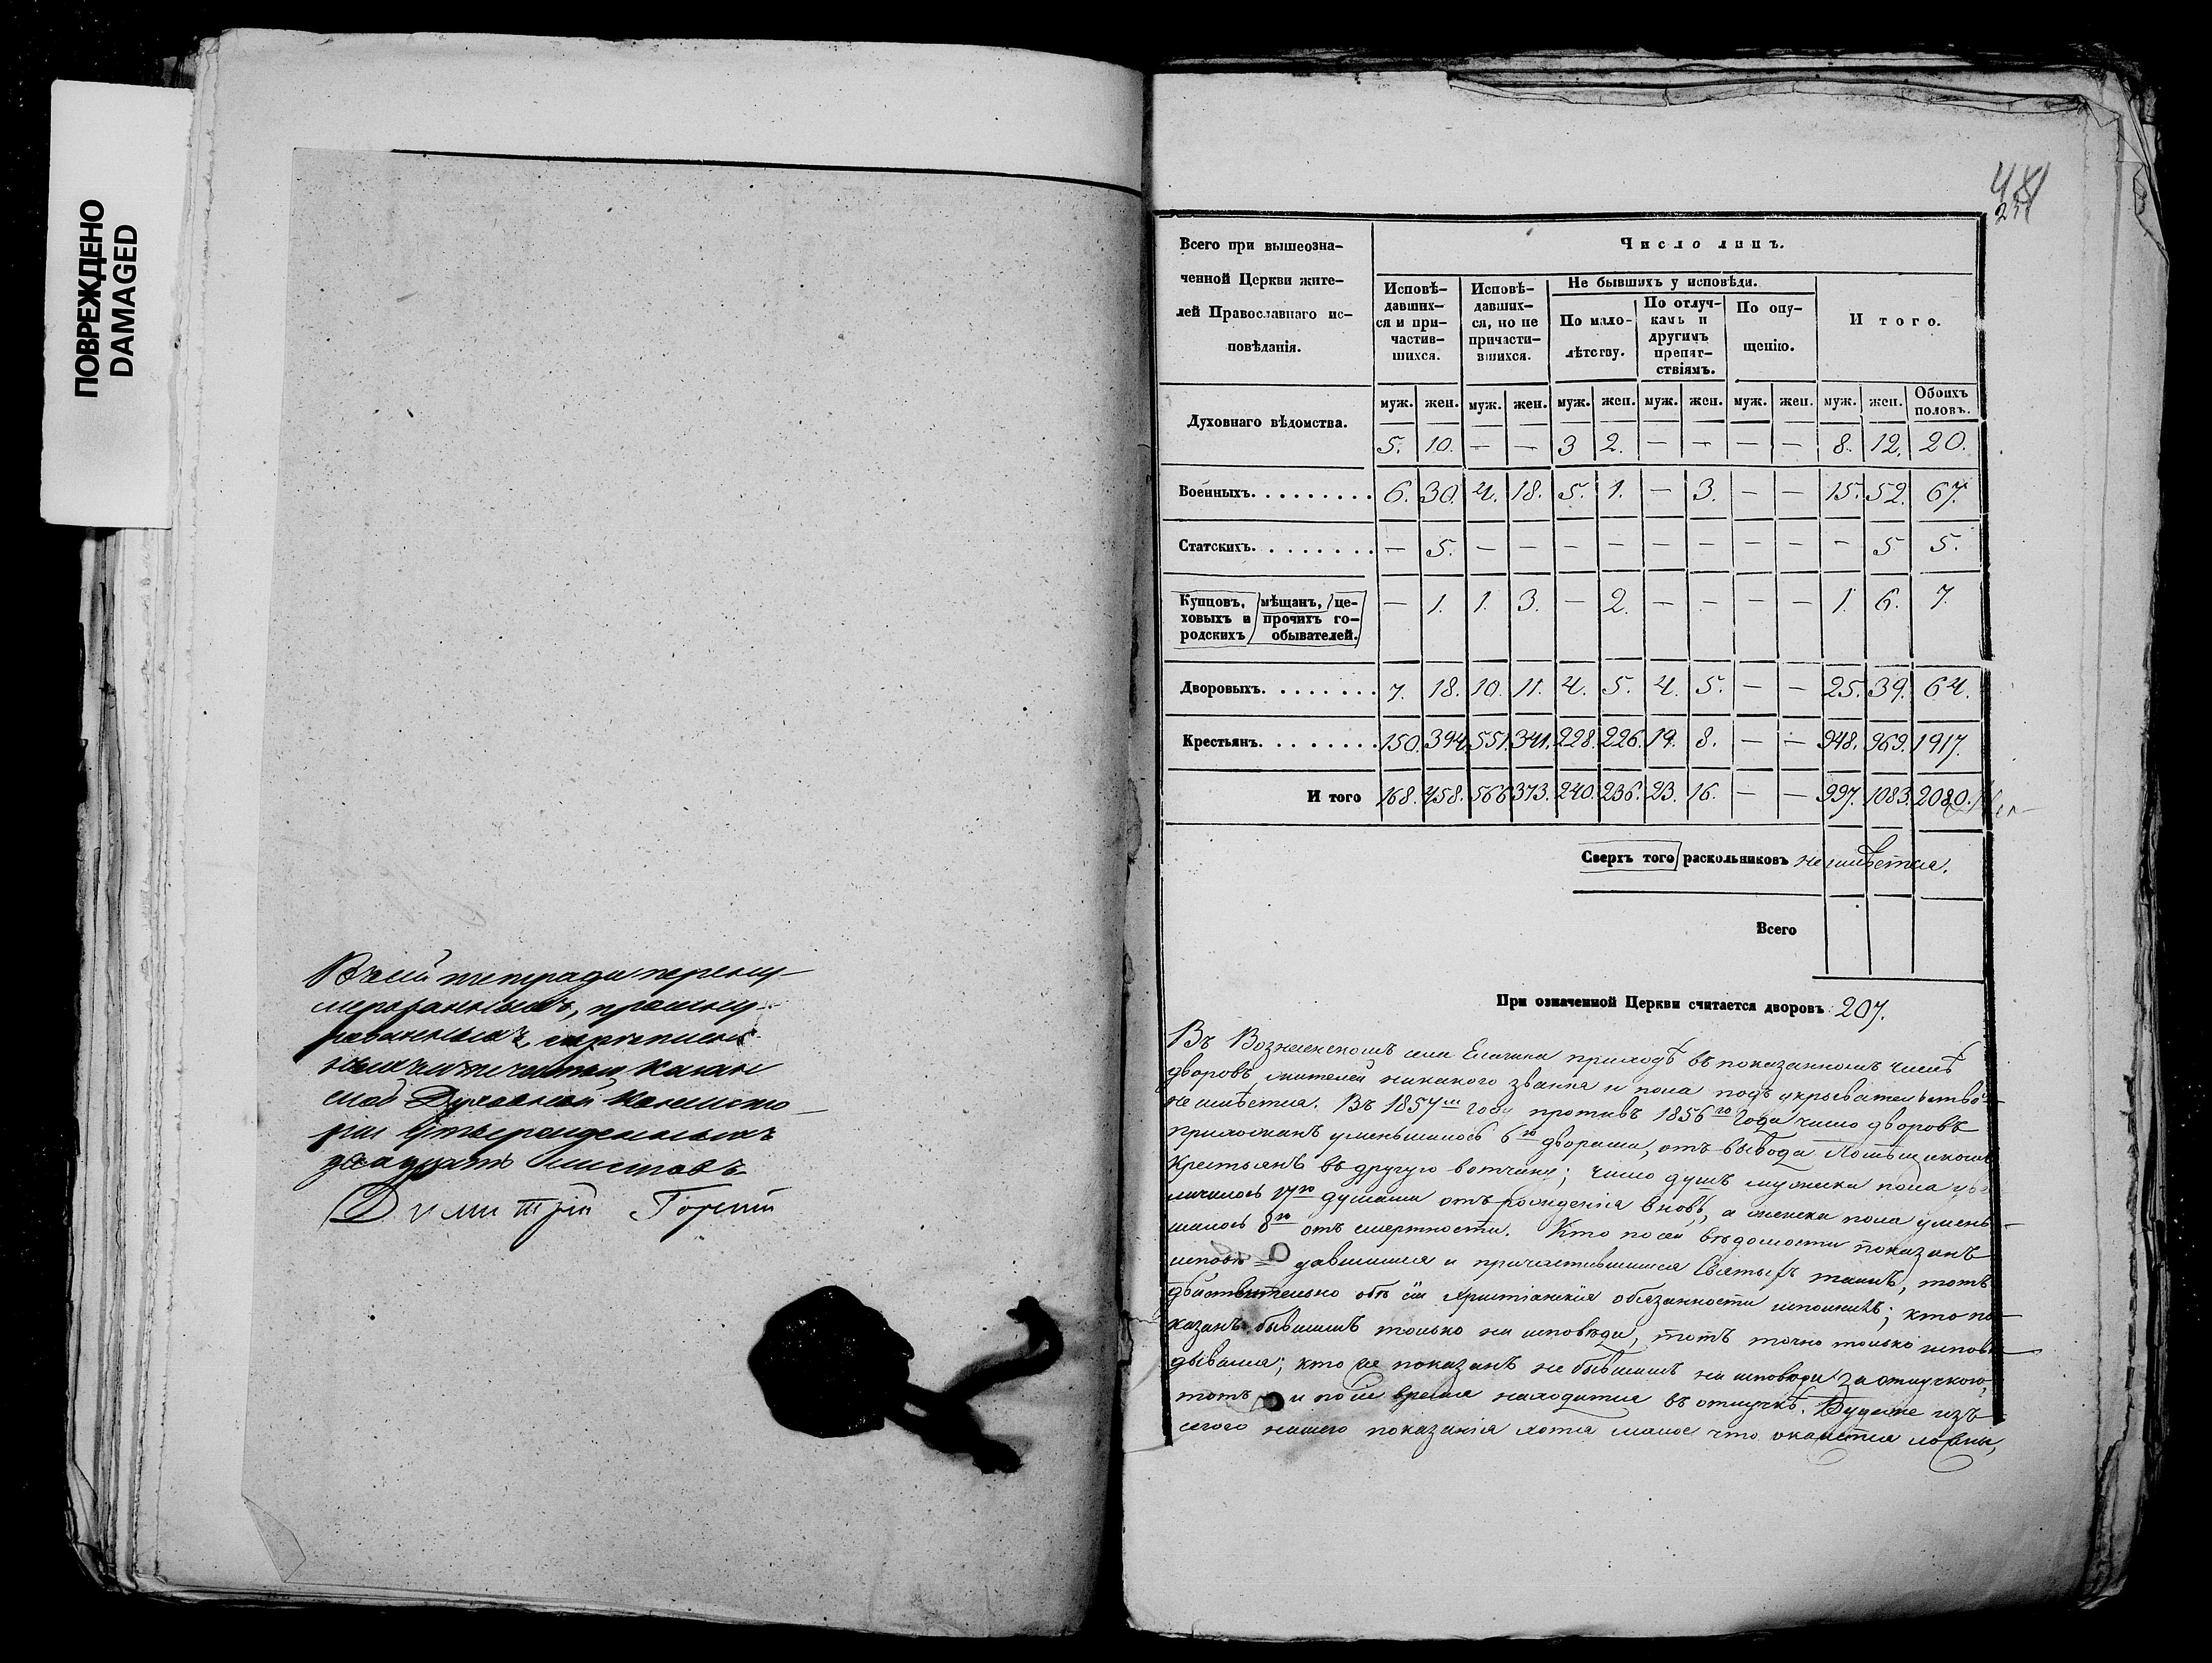 ПОВРЕЖДЕНО
DAMAGED
Всей тетради перену-
мерованныхъ, прошну-
рованныхъ, скрѣпленныхъ
печатью Казан
ской Духовной Консисто-
ріи утвержденныхъ
двадцать листовъ
Димитрій Горскій
Всего при вышеозна-
ченной Церкви жите-
лей Православнаго ис-
повѣданія.
Число лицъ.
Исповѣ-
давших-
ся и при-
частив-
шихся.
Исповѣ-
давших-
ся, но не
причасти-
вшихся.
Не бывшихъ у исповѣди.
По мало-
лѣтству.
По отлуч-
камъ и
другимъ
препят-
ствіямъ.
По опу-
щенію.
Итого.
муж. жен. муж. жен. муж. жен. муж. жен. муж. жен. муж. жен. Обоихъ половъ.
Духовнаго вѣдомства. 5. 10. — — 3 2. — — — — 8. 12. 20.
Военныхъ. 6. 30. 4. 18. 5. 1. — 3. — — 15. 52. 67.
Статскихъ. — 5. — — — — — — — — — 5 5.
Купцовъ, мѣщанъ, це-
ховыхъ и прочихъ го-
родскихъ обывателей. — 1. 1. 3. — 2. — — — — 1. 6. 7.
Дворовыхъ. 7. 18. 10. 11. 4. 5. 4. 5. — — 25. 39. 64.
Крестьянъ. 150. 394. 551. 341. 228. 226. 19. 8. — — 948. 969. 1917.
И того 168. 458. 566 373. 240. 236. 23. 16. — — 997. 1083. 2080.
Сверхъ того раскольниковъ не имѣется.
Всего
При означенной Церкви считается дворовъ 207.
Въ Вознесенскомъ села приходѣ въ показанномъ числѣ
дворовъ, жителей никакого званія и пола подъ укрывательство
не имѣется. Въ 1857м году противъ 1856го года число дворовъ
прихожанъ уменьшилось 6ю дворами, отъ вывода Помѣщикомъ
Крестьянъ въ другую вотчину; число душъ мужеска пола уве
личилось 17ю душами отъ рожденія вновь, а женска пола умень-
шилось 8ю отъ смертности. Кто по сей вѣдомости показанъ
исповѣдавшимся и причастившимся Святыхъ таинъ, тотъ
дѣйствительно обѣ сіи христіанскія обязанности исполнилъ; кто по-
казанъ бывшимъ только на исповѣди, тотъ точно только исповѣ-
дывался; кто же показанъ не бывшимъ на исповѣди за отлучкою,
тотъ и по сіе время находится въ отлучкѣ. Буде же изъ
сего нашего показанія хотя малое что окажется ложны,